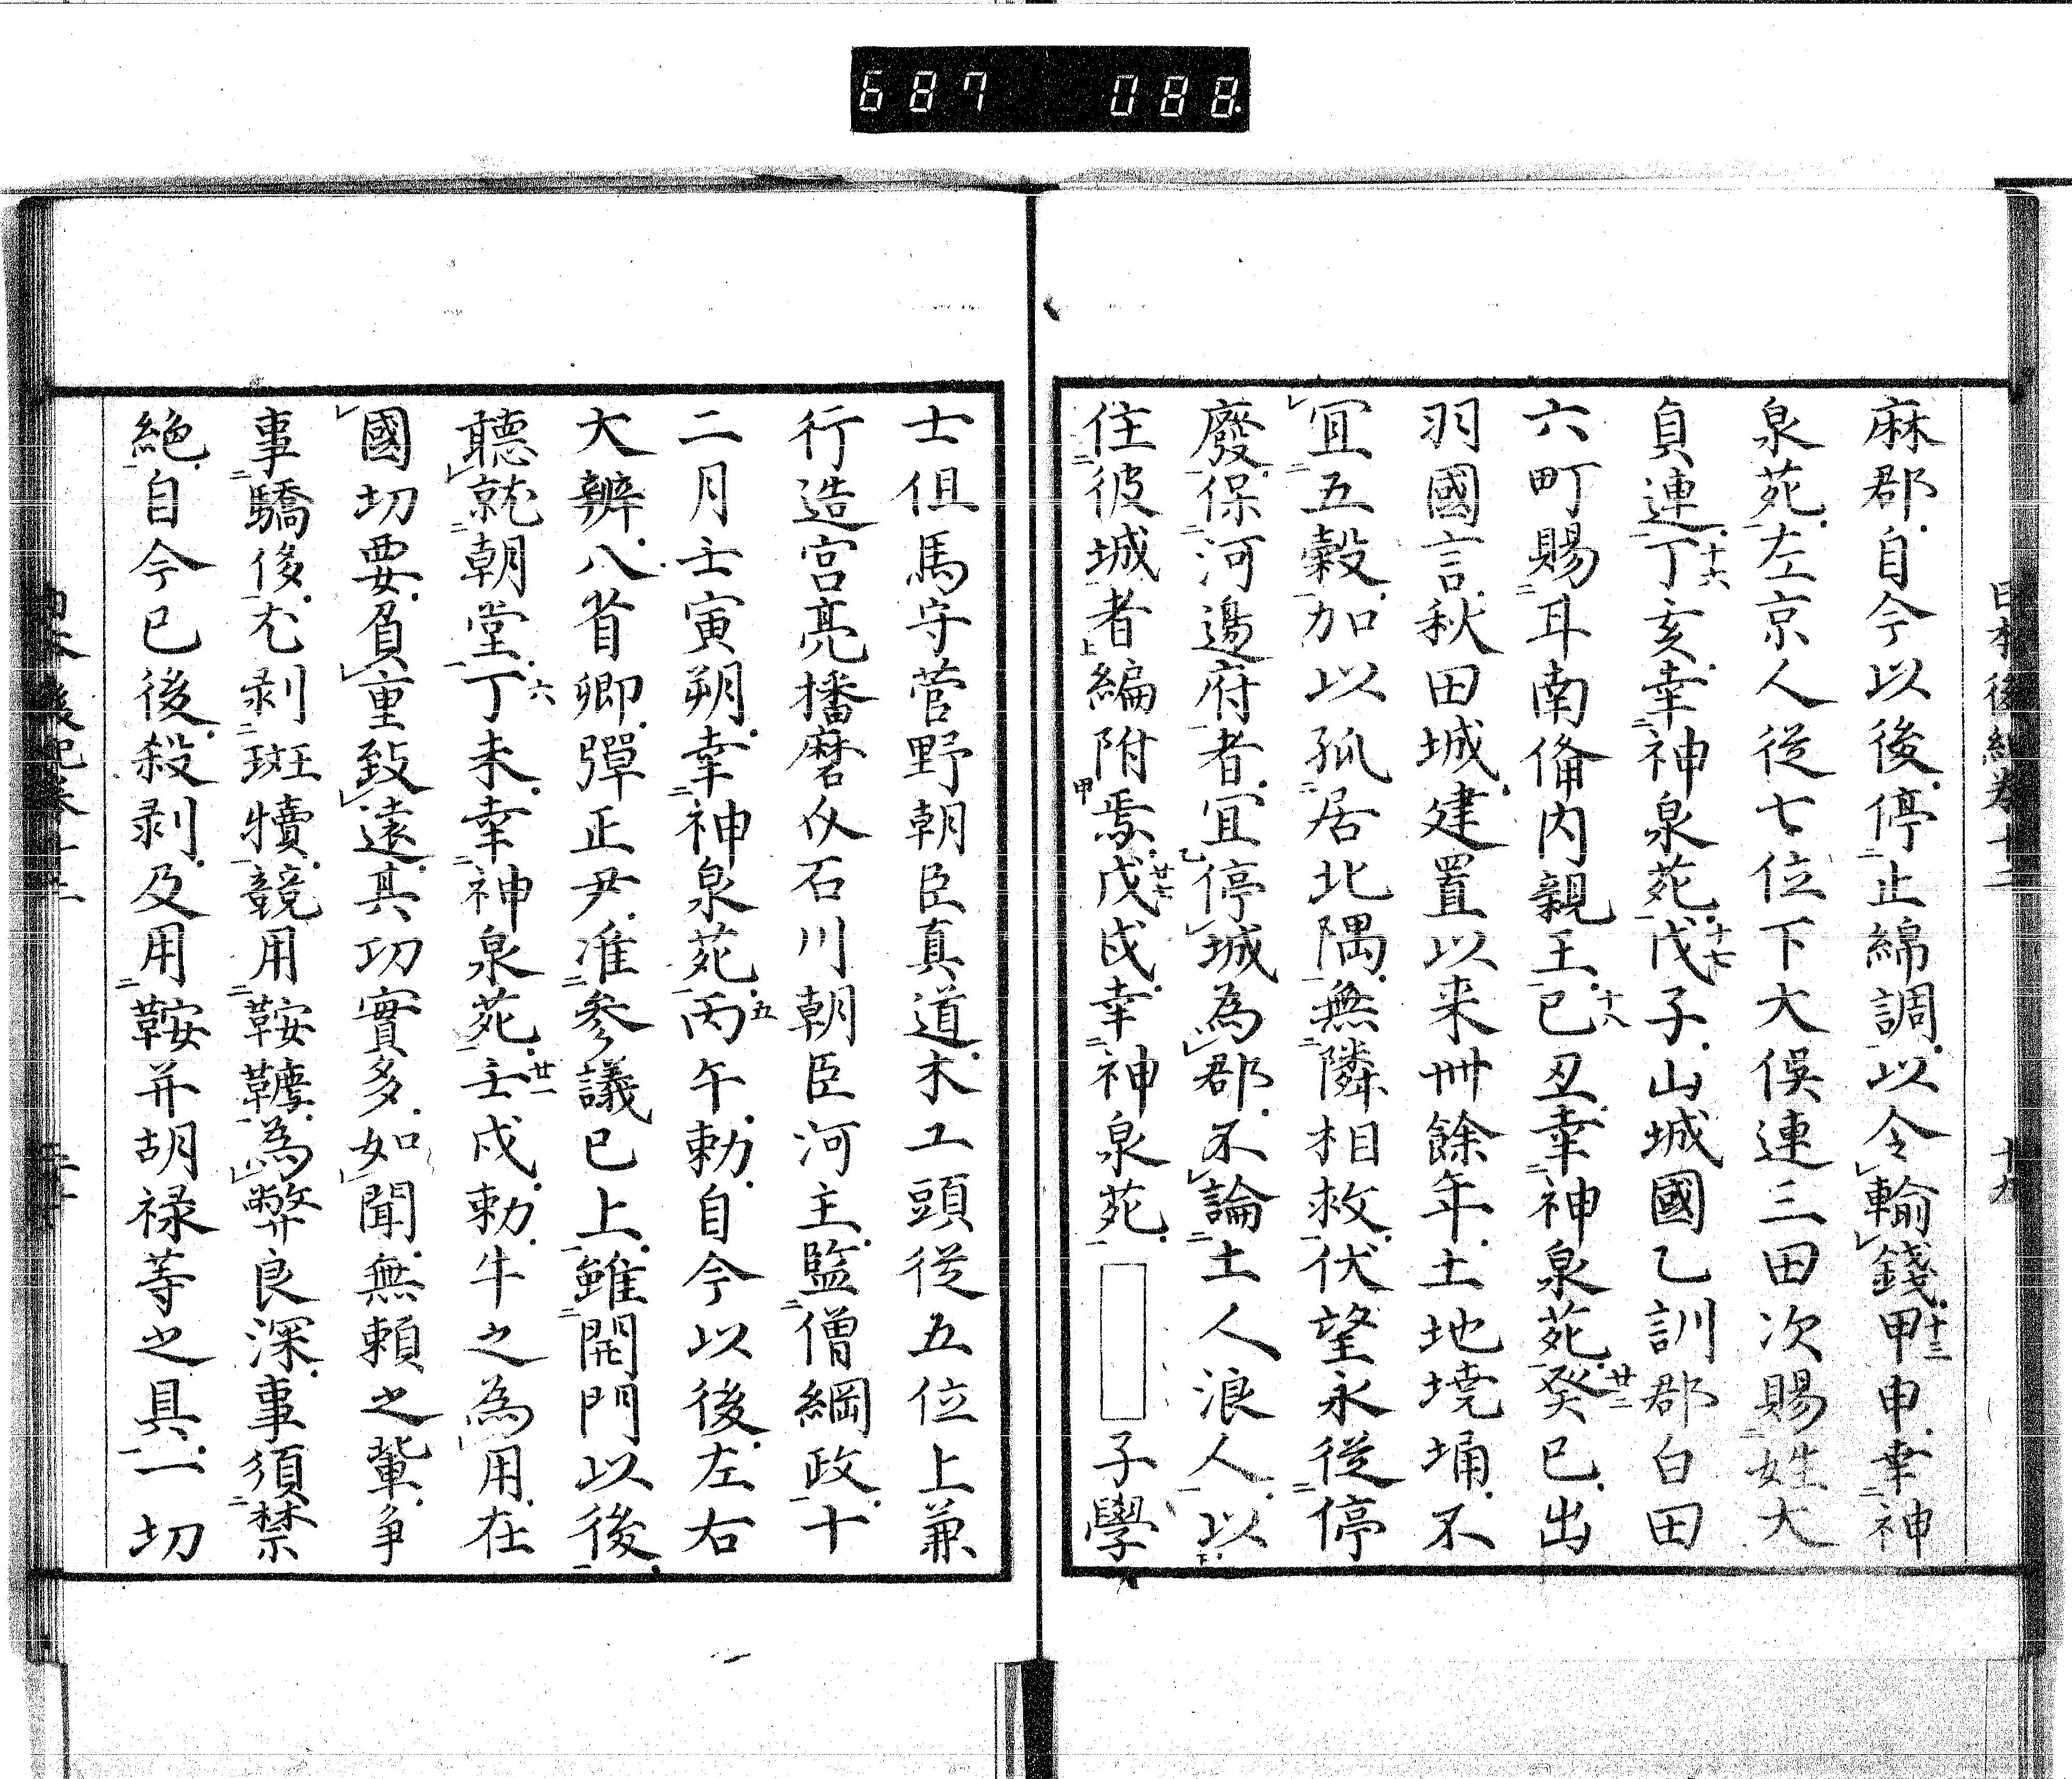 687 088
日本後紀卷十二 十九
麻郡自今以後停止綿調以令輸錢甲申幸神
泉苑左京人從七位下大俣連三田次賜姓大
貞連丁亥幸神泉苑戊子山城國乙訓郡白田
六町賜耳南備内親王己丑幸神泉苑癸巳出
羽國言秋田城建置以来卌餘年土地墝埇不
宜五穀加以孤居北隅無隣相救伏望永從停
廢保河邊府者宜停城為郡不論土人浪人以
住彼城者編附焉戊戌幸神泉苑 子學
士但馬守菅野朝臣真道木工頭從五位上兼
行造宮亮播磨介石川朝臣河主監僧綱政十
二月壬寅朔幸神泉苑丙午勅自今以後左右
大辨八省卿彈正尹准参議已上雖開門以後
聽就朝堂丁未幸神泉苑壬戌勅牛之為用在
國切要負重致遠其功實多如聞無頼之輩争
事驕侈尤剥斑犢競用鞍韉為弊良深事須禁
絶自今已後殺剥及用鞍并胡禄䓁之具一切